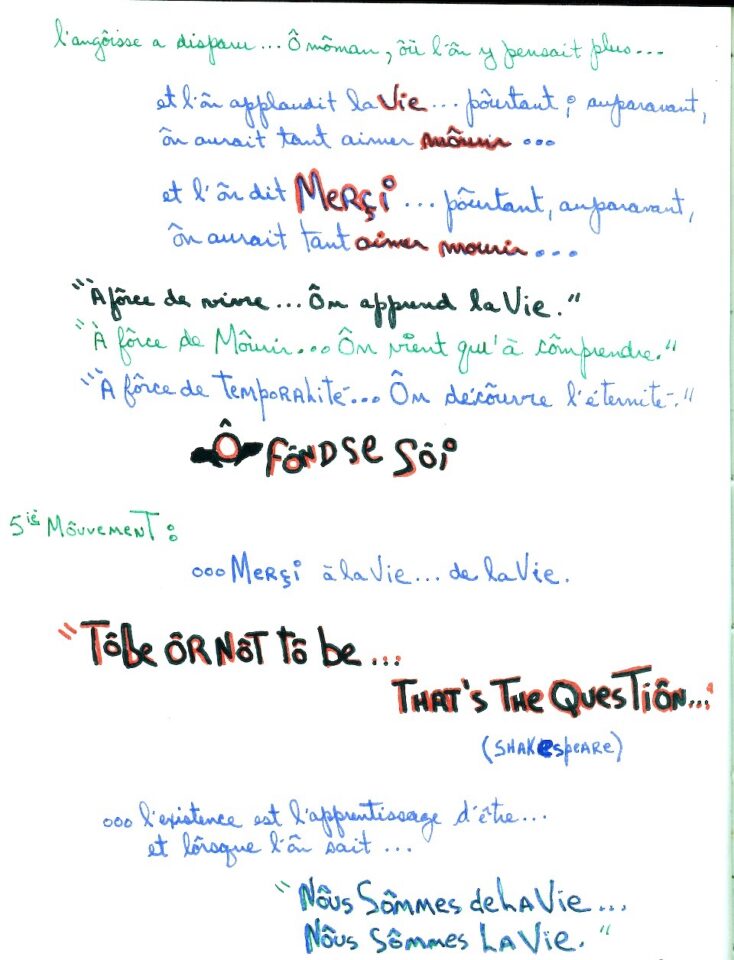 l'angôisse a disparu... Ô môman, ôù l'ôn y pensait plus...
et l'ôn applaudit la Vie... pôurtant, auparavant,
ôn aurait tant aimer môurir ...
et l'ôn dit MerÇi ... pôurtant, auparavant,
ôn aurait tant aimer mourir ...
"À fôrce de vivre ... Ôn apprend la Vie."
"À fôrce de Môurir... Ôn vient qu'à cômprendre."
"À fôrce de TEMPORALITÉ... Ôn décôuvre l'éternité."
Ô FÔND SE SÔi
5iè MôuvemenT :
ooo MerÇi à la Vie... de la Vie.
"TôBe ÔR NôT Tô be ...
THAT'S THE QuesTiôn..."
(SHAKespeare)
ooo l'existence est l'apprentissage d'être...
et lôrsque l'ôn sait ...
"Nôus Sômmes de LA Vie ...
Nôus Sômmes LA Vie."